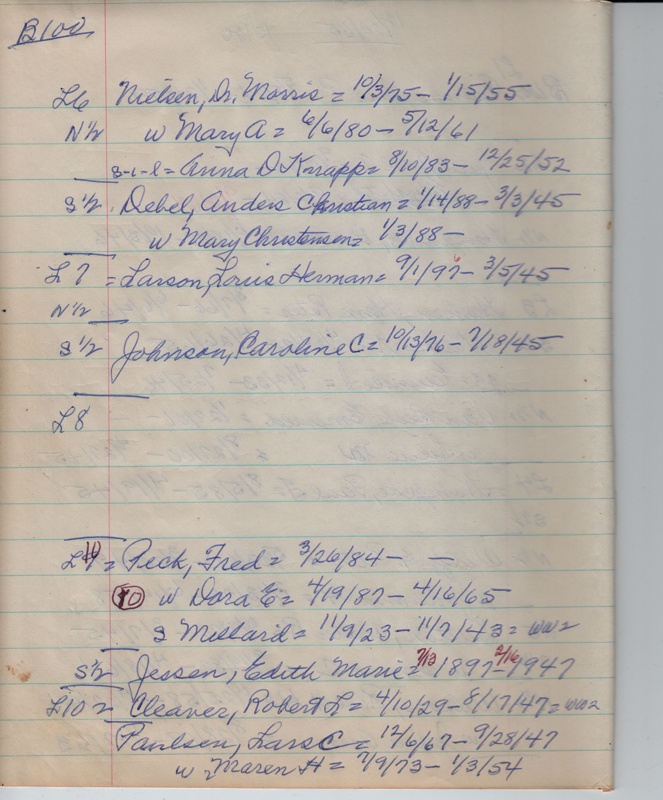 B100
L6 Nielsen, Dr. Morris = 10/3/75 - 1/15/55
N 1/2 w Mary A = 6/6/80 - 5/12/61
s-i-l = Anna D Knapp = 8/10/83 - 12/25/52
S 1/2 Debel, Anders Christian = 1/14/88 - 3/3/45
w Mary Christensen = 1/3/88 -
L7 = Larson, Louis Herman = 9/1/97 - 3/5/45
N 1/2
S 1/2 Johnson, Caroline C = 10/13/76 - 7/18/45
L8
= Peck, Fred = 3/26/84 - -
10 w Dora E = 4/19/87 - 4/16/65
s Millard = 11/9/23 - 11/7/43 = WW2
S 1/2 Jessen, Edith Marie = 7/13 1897 - 2/16 1947
L10 = Cleaver, Robert L = 4/10/29 - 8/17/47 = WW2
Paulsen, Lars C = 12/6/67 - 9/28/47
w Maren H = 7/9/73 - 1/3/54